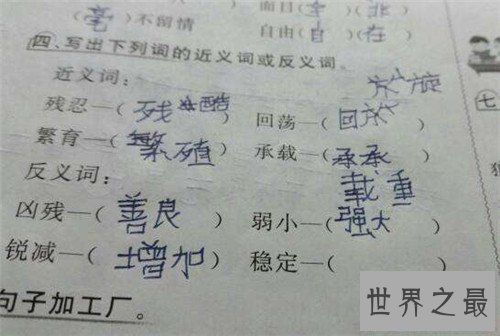 (毫)不留情 面目(全)(非)
自由(自)(在)
四、写出下列词的近义词或反义词。
近义词:
残忍—(残酷) 回荡—(回放)
繁育—(繁殖) 承载—(承承)
载重
反义词:
凶残—(善良) 弱小—(强大)
锐减—(增加) 稳定—(
句子加工厂。
七
世界之最